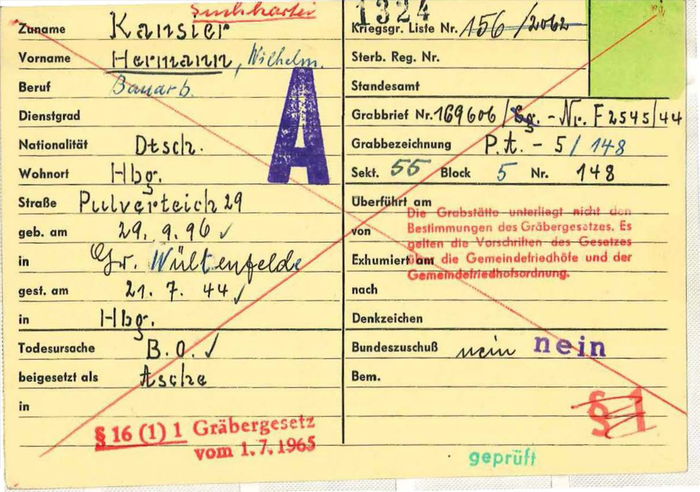 Suchkartei
Zuname Kansier
Vorname Hermann, Wilhelm.
Beruf Bauarb.
Dienstgrad
Nationalität Dtsch.
Wohnort Hbg.
Straße Pulverteich 29
geb. am 29. 9. 96 ✓
in Gr. Wültenfelde
gest. am 21. 7. 44 ✓
in Hbg.
Todesursache B.O. ✓
beigesetzt als Asche
in
A
§ 16 (1) 1 Gräbergesetz
vom 1. 7. 1965
1324
Kriegsgr. Liste Nr. 156/2062
Sterb. Reg. Nr.
Standesamt
Grabbrief Nr. 169606/ - Nr. F 2545/44
Grabbezeichnung P.A. - 5/148
Sekt. 55 Block 5 Nr. 148
Überführt am
Die Grabstätte unterliegt nicht den
von Bestimmungen des Gräbergesetzes. Es
gelten die Vorschriften des Gesetzes
Exhumiert am über die Gemeindefriedhöfe und der
Gemeindefriedhofsordnung.
nach
Denkzeichen
Bundeszuschuß nein nein
Bem.
§ 1
geprüft